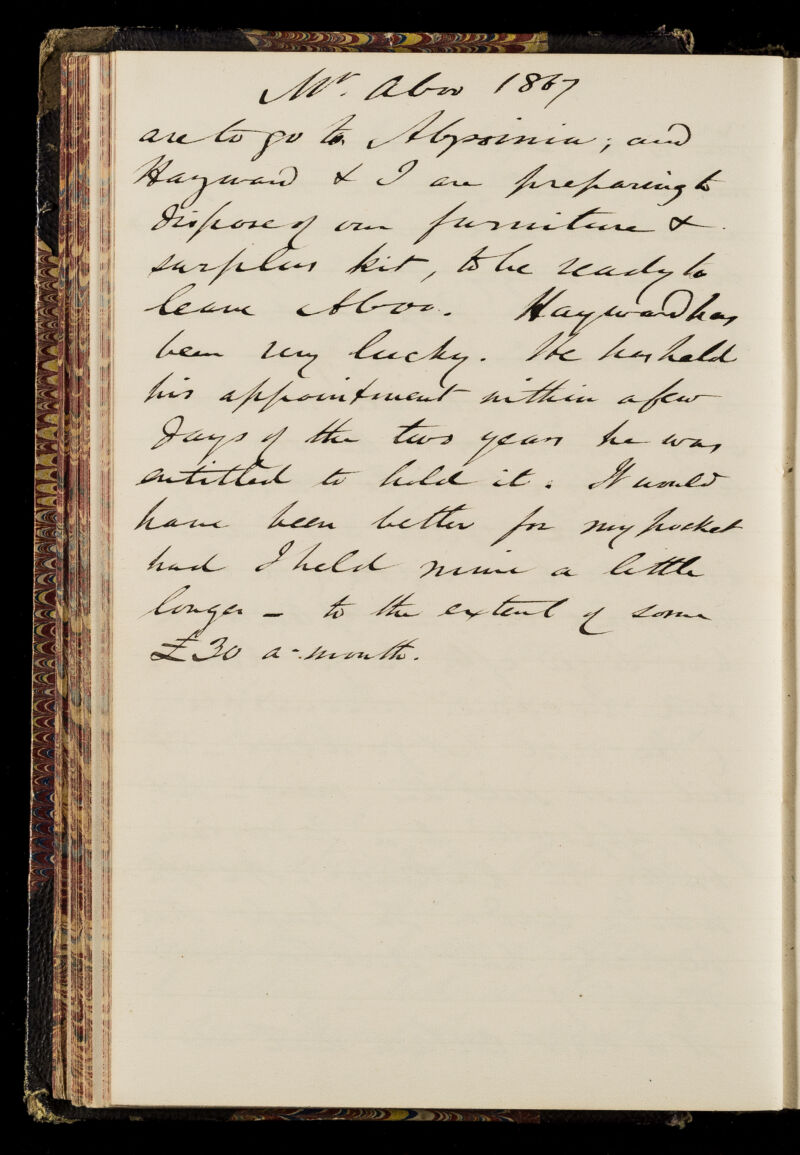 Mt. Aboo 1867
are to go to Abyssinia; and
Hayward & I are preparing to
dispose of our furniture &
surplus kit, to be ready to
leave Aboo. Hayward has
been very lucky. He has held
his appointment within a few
days of the two years he was
entitled to hold it. It would
have been better for my pocket
had I held mine a little
longer - to the extent of some
£30 a-month.